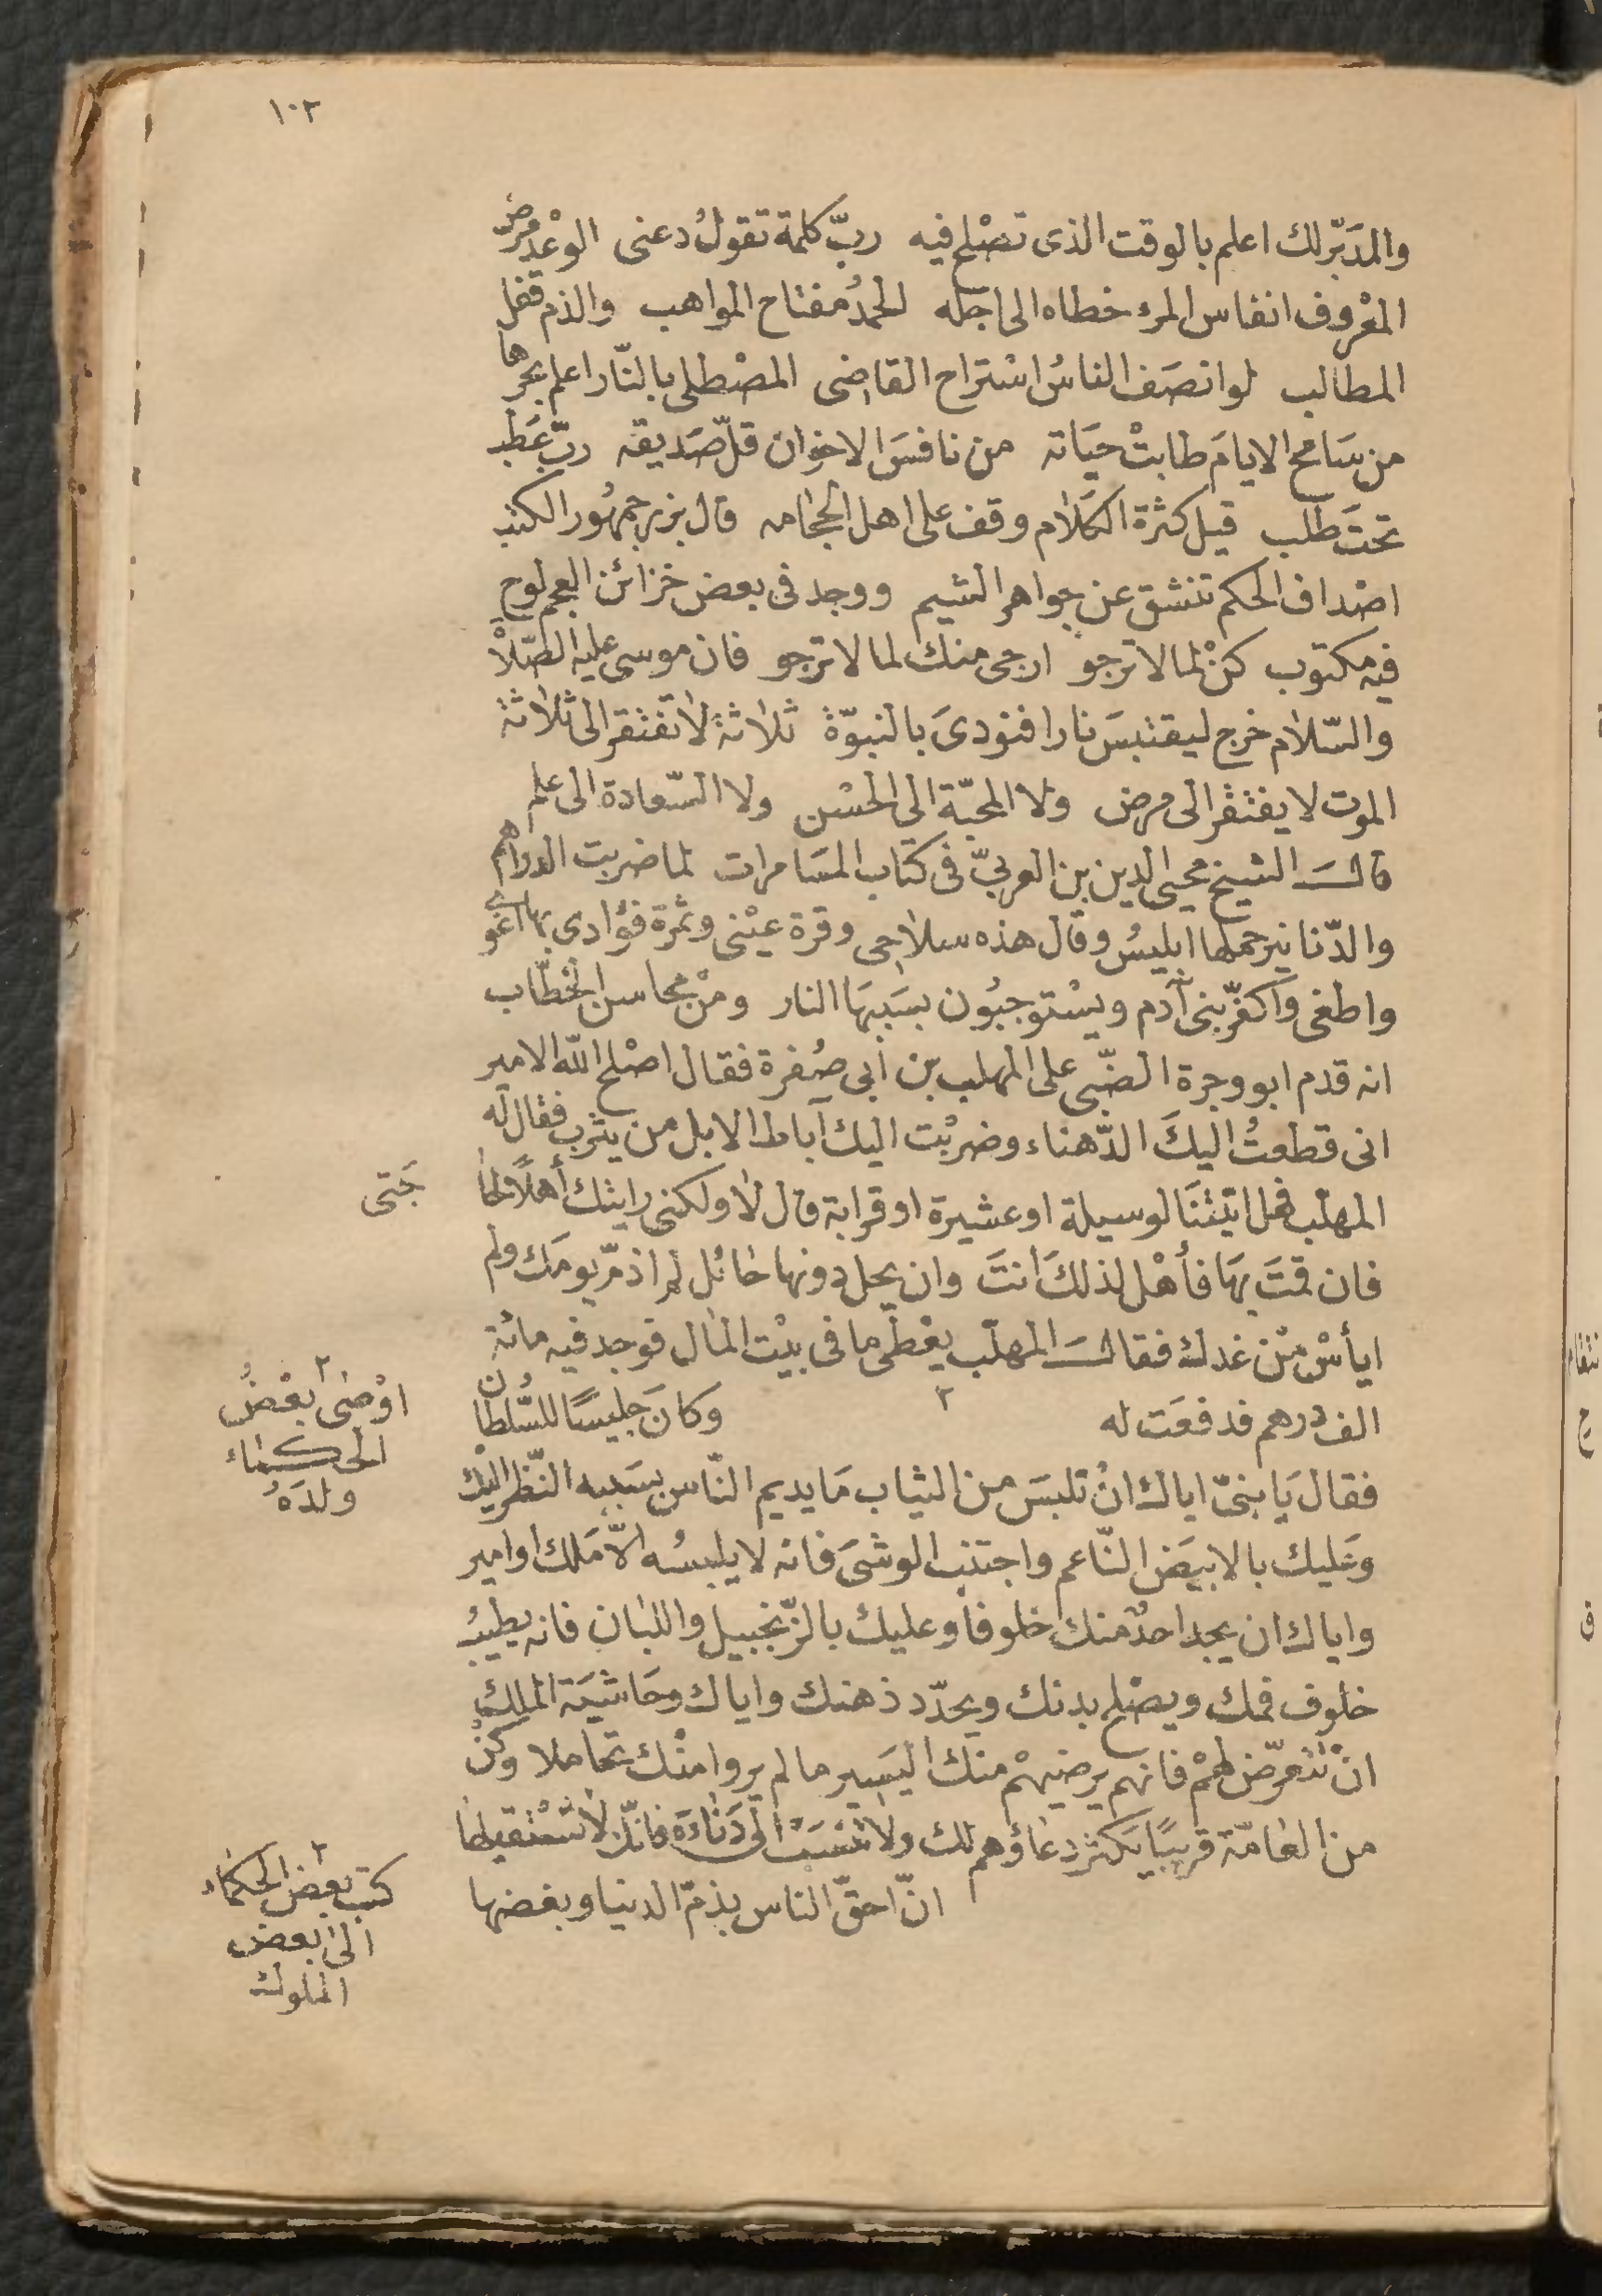 ١٠٢
والمدَبّر لك اعلم بالوقت الذى تصْلح فيه ربّ كلمة تقولُ دعنى الوعْد مرض
المعْروف انفاس المرء خطاه الى اجله الحمدُ مفتاح المواهب والذم قفل
المطالب لو انصَف الناسُ اسْتراح القاضى المصْطلى بالنّار اعلم بحرها
من سَامح الايامَ طابتْ حيَاته من نافسَ الاخوان قلّ صَديقه ربّ عَطب
تحتَ طلب قيل كثرة الكلام وقف على اهل الحجامه قال بزرجمهُور الكتب
اصْداف الحكم تنشق عن جواهر الشيم ووجد فى بعض خزائن العجم لوح
فيه مكتوب كنْ لما لا ترجو ارجى منك لما لا ترجو فان موسى عليه الصّلاة
والسّلام خرج ليقتبسَ نارا فنودىَ بالنبوّة ثلاثة لا تفتقر الى ثلاثة
الموت لا يفتقر الى مرض ولا المحبّة الى الحسْن ولا السّعادة الى علم
قال الشيخ محيى الدين بن العربىّ فى كتاب المسَامرات لما ضربت الدراهم
والدّنانير حملها ابليسُ وقال هذه سلاحى وقرة عيْنى وثمرة فؤادى بها اغوى
واطغى واكفّر بنى آدم ويسْتوجبُون بسَببهَا النار ومنْ محاسن الخطّاب
انه قدم ابو وجرة الضّبى على المهلب بن ابى صُفرة فقال اصْلح الله الامير
انى قطعتُ اليكَ الدّهناء وضربْت اليك آباط الابل من يثرب فقال له
المهلّب فهل اتيْتنَا لوسيلة او عشيرة او قرابة قال لا ولكنى رايتك أهلًا لحا
جَتى
فان قمتَ بهَا فأهْل لذلكَ انتَ وان يحل دونها حائل لم اذمّ يومَك ولم
ايأسْ منْ غدك فقال المهلّب يعْطى ما فى بيْت المال فوجد فيه مائة
الف درهم فدفعَت له ٢ وكانَ جَليسًا للسُّلطان
٢ اوْصٰى بعْضُ
الحكماء
ولدَهُ
فقال يَا بنىّ اياك انْ تلبسَ من الثياب مَا يديم النّاس بسَببه النّظر اليْك
وعَليك بالابيَض النّاعم واجتنب الوشىَ فانه لا يلبسُه الّا مَلك او امير
واياك ان يجد احدٌ منك خلوفا وعليك بالزّنجبيل واللبان فانه يطيبُ
خلوف فمك ويصْلح بدنك ويحدّد ذهنك واياك وحَاشيَة الملك
انْ تتعرّض لهمْ فانهم يرضيهمْ منك اليَسير ما لم يروا منْك تحاملا وكنْ
من العامّة قريبًا يَكثر دعاؤهم لك ولا تنسَبْ الى دَناءَة فانّك لا تسْتقيلها
انّ احقّ الناس بذمّ الدنيا وبغضها
٢ كتب بعض الحكماء
الى بعض
الملوك